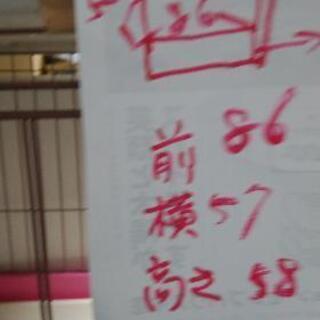 86
前 86
横 57
高さ 58